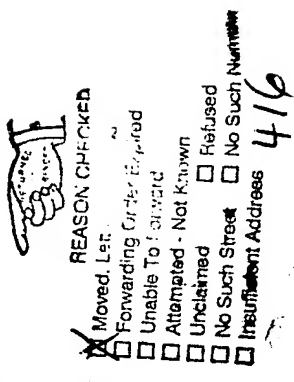 REASON CHECKED
Moved, Left
Forwarding Order Expired
Unable To Forward
Attempted - Not Known
Unclaimed ☐ Refused
No Such Street ☐ No Such Number
Insufficient Address
416